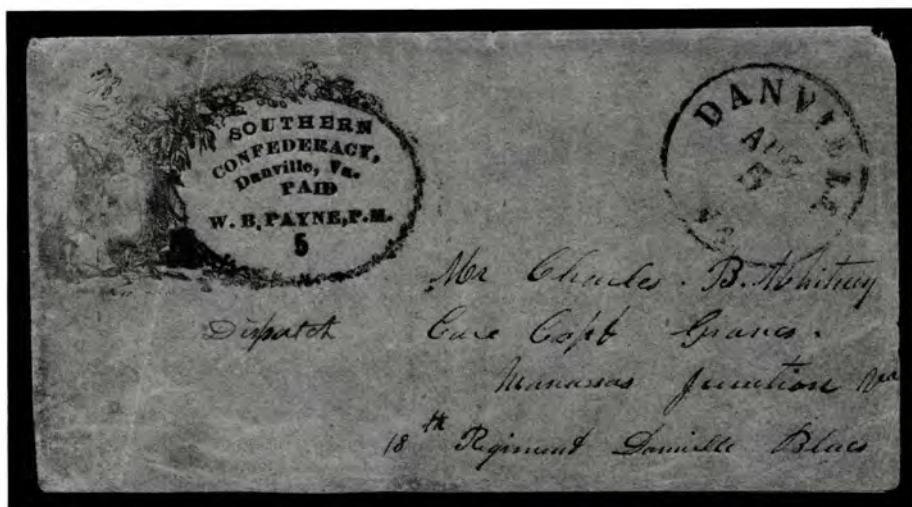 SOUTHERN
CONFEDERACY,
Danville, Va.
PAID
W. B. PAYNE, P.M.
5
DANVILLE
AUG
5
VA
Mr Charles. B. Whitney
Dispatch Care Capt Graves.
Manassas Junction Va
18th Regiment Danville Blues